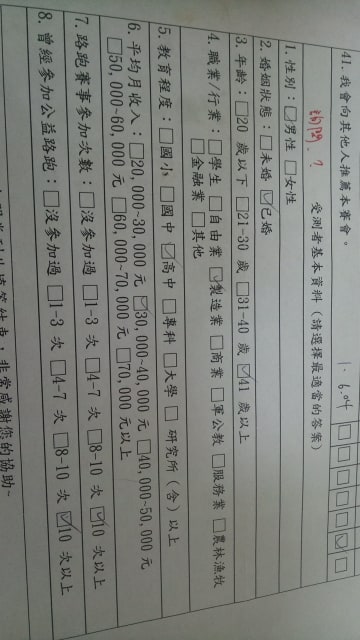 41. 我會向其他人推薦本賽會。 1. 6.04 □□□□□☑□
詢問.? 受測者基本資料(請選擇最適當的答案)
1. 性別：□男性 □女性
2. 婚姻狀態：□未婚 ☑已婚
3. 年齡：□20 歲以下 □21-30 歲 □31-40 歲 ☑41 歲以上
4. 職業/行業：□學生 □自由業 ☑製造業 □商業 □軍公教 □服務業 □農林漁牧
□金融業 □其他
5. 教育程度：□國小 □國中 ☑高中 □專科 □大學 □ 研究所(含)以上
6. 平均月收入：□20,000~30,000 元 ☑30,000~40,000 元 □40,000~50,000 元
□50,000~60,000 元 □60,000~70,000 元 □70,000 元以上
7. 路跑賽事參加次數：□沒參加過 □1-3 次 □4-7 次 □8-10 次 ☑10 次以上
8. 曾經參加公益路跑：□沒參加過 □1-3 次 □4-7 次 □8-10 次 ☑10 次以上
結束，非常感謝您的協助~